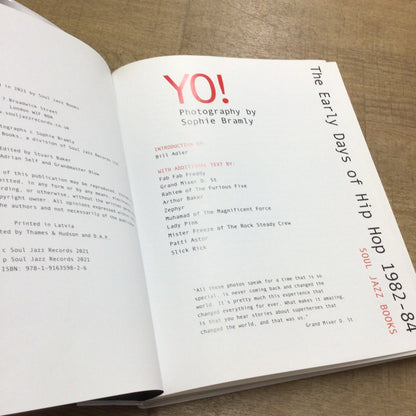 in 2021 by Soul Jazz Books
7 Broadwick Street
London W1F 0DA
.souljazzrecords.co.uk
otographs © Sophie Bramly
Books, a division of Soul Jazz Records Ltd
Edited by Stuart Baker
Adrian Self and Grandmaster Blom
of this publication may be reproduced,
mitted, in any form or by any means,
ording, or otherwise, without the written
yright owner. All opinions stated
the authors and not necessarily of the publisher
Printed in Latvia
uted by Thames & Hudson and D.A.P.
© Soul Jazz Records 2021
℗ Soul Jazz Records 2021
ISBN: 978-1-9163598-2-6
YO!
Photography by
Sophie Bramly
INTRODUCTION BY:
Bill Adler
WITH ADDITIONAL TEXT BY:
Fab Fab Freddy
Grand Mixer D. St
Rahiem of The Furious Five
Arthur Baker
Zephyr
Muhamad of The Magnificent Force
Lady Pink
Mister Freeze of The Rock Steady Crew
Patti Astor
Slick Rick
"All these photos speak for a time that is so
special, is never coming back and changed the
world. It's pretty much this experience that
changed everything for ever. What makes it amazing,
is that you hear stories about superheroes that
changed the world, and that was us."
Grand Mixer D. St
The Early Days of Hip Hop 1982-84
SOUL JAZZ BOOKS